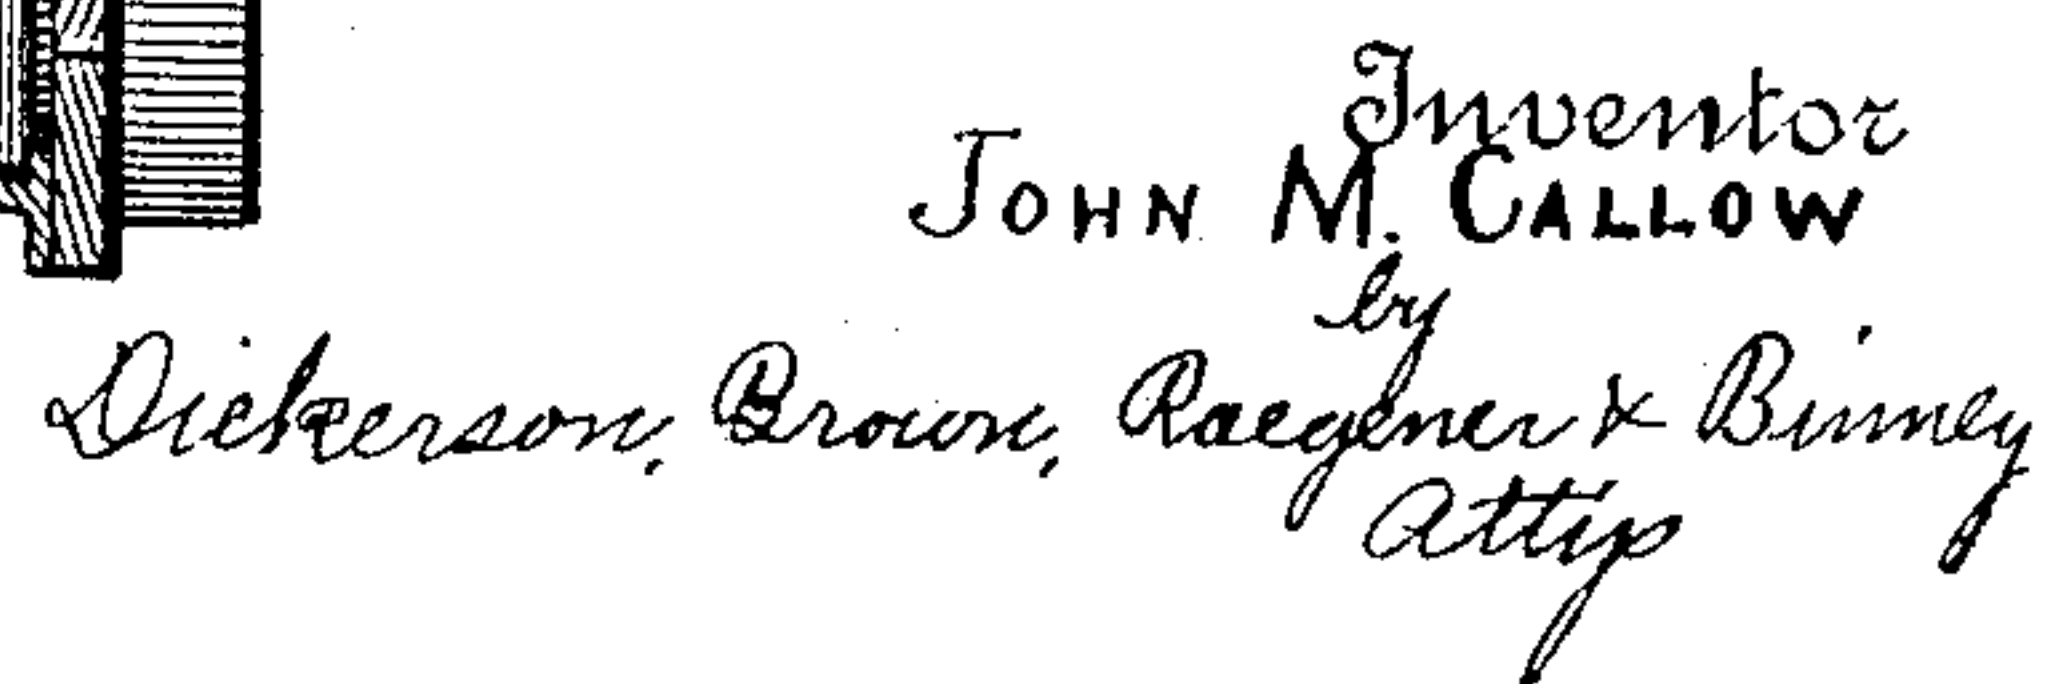 Inventor
JOHN M. CALLOW
by
Dickerson, Brown, Raegener & Binney
Attys